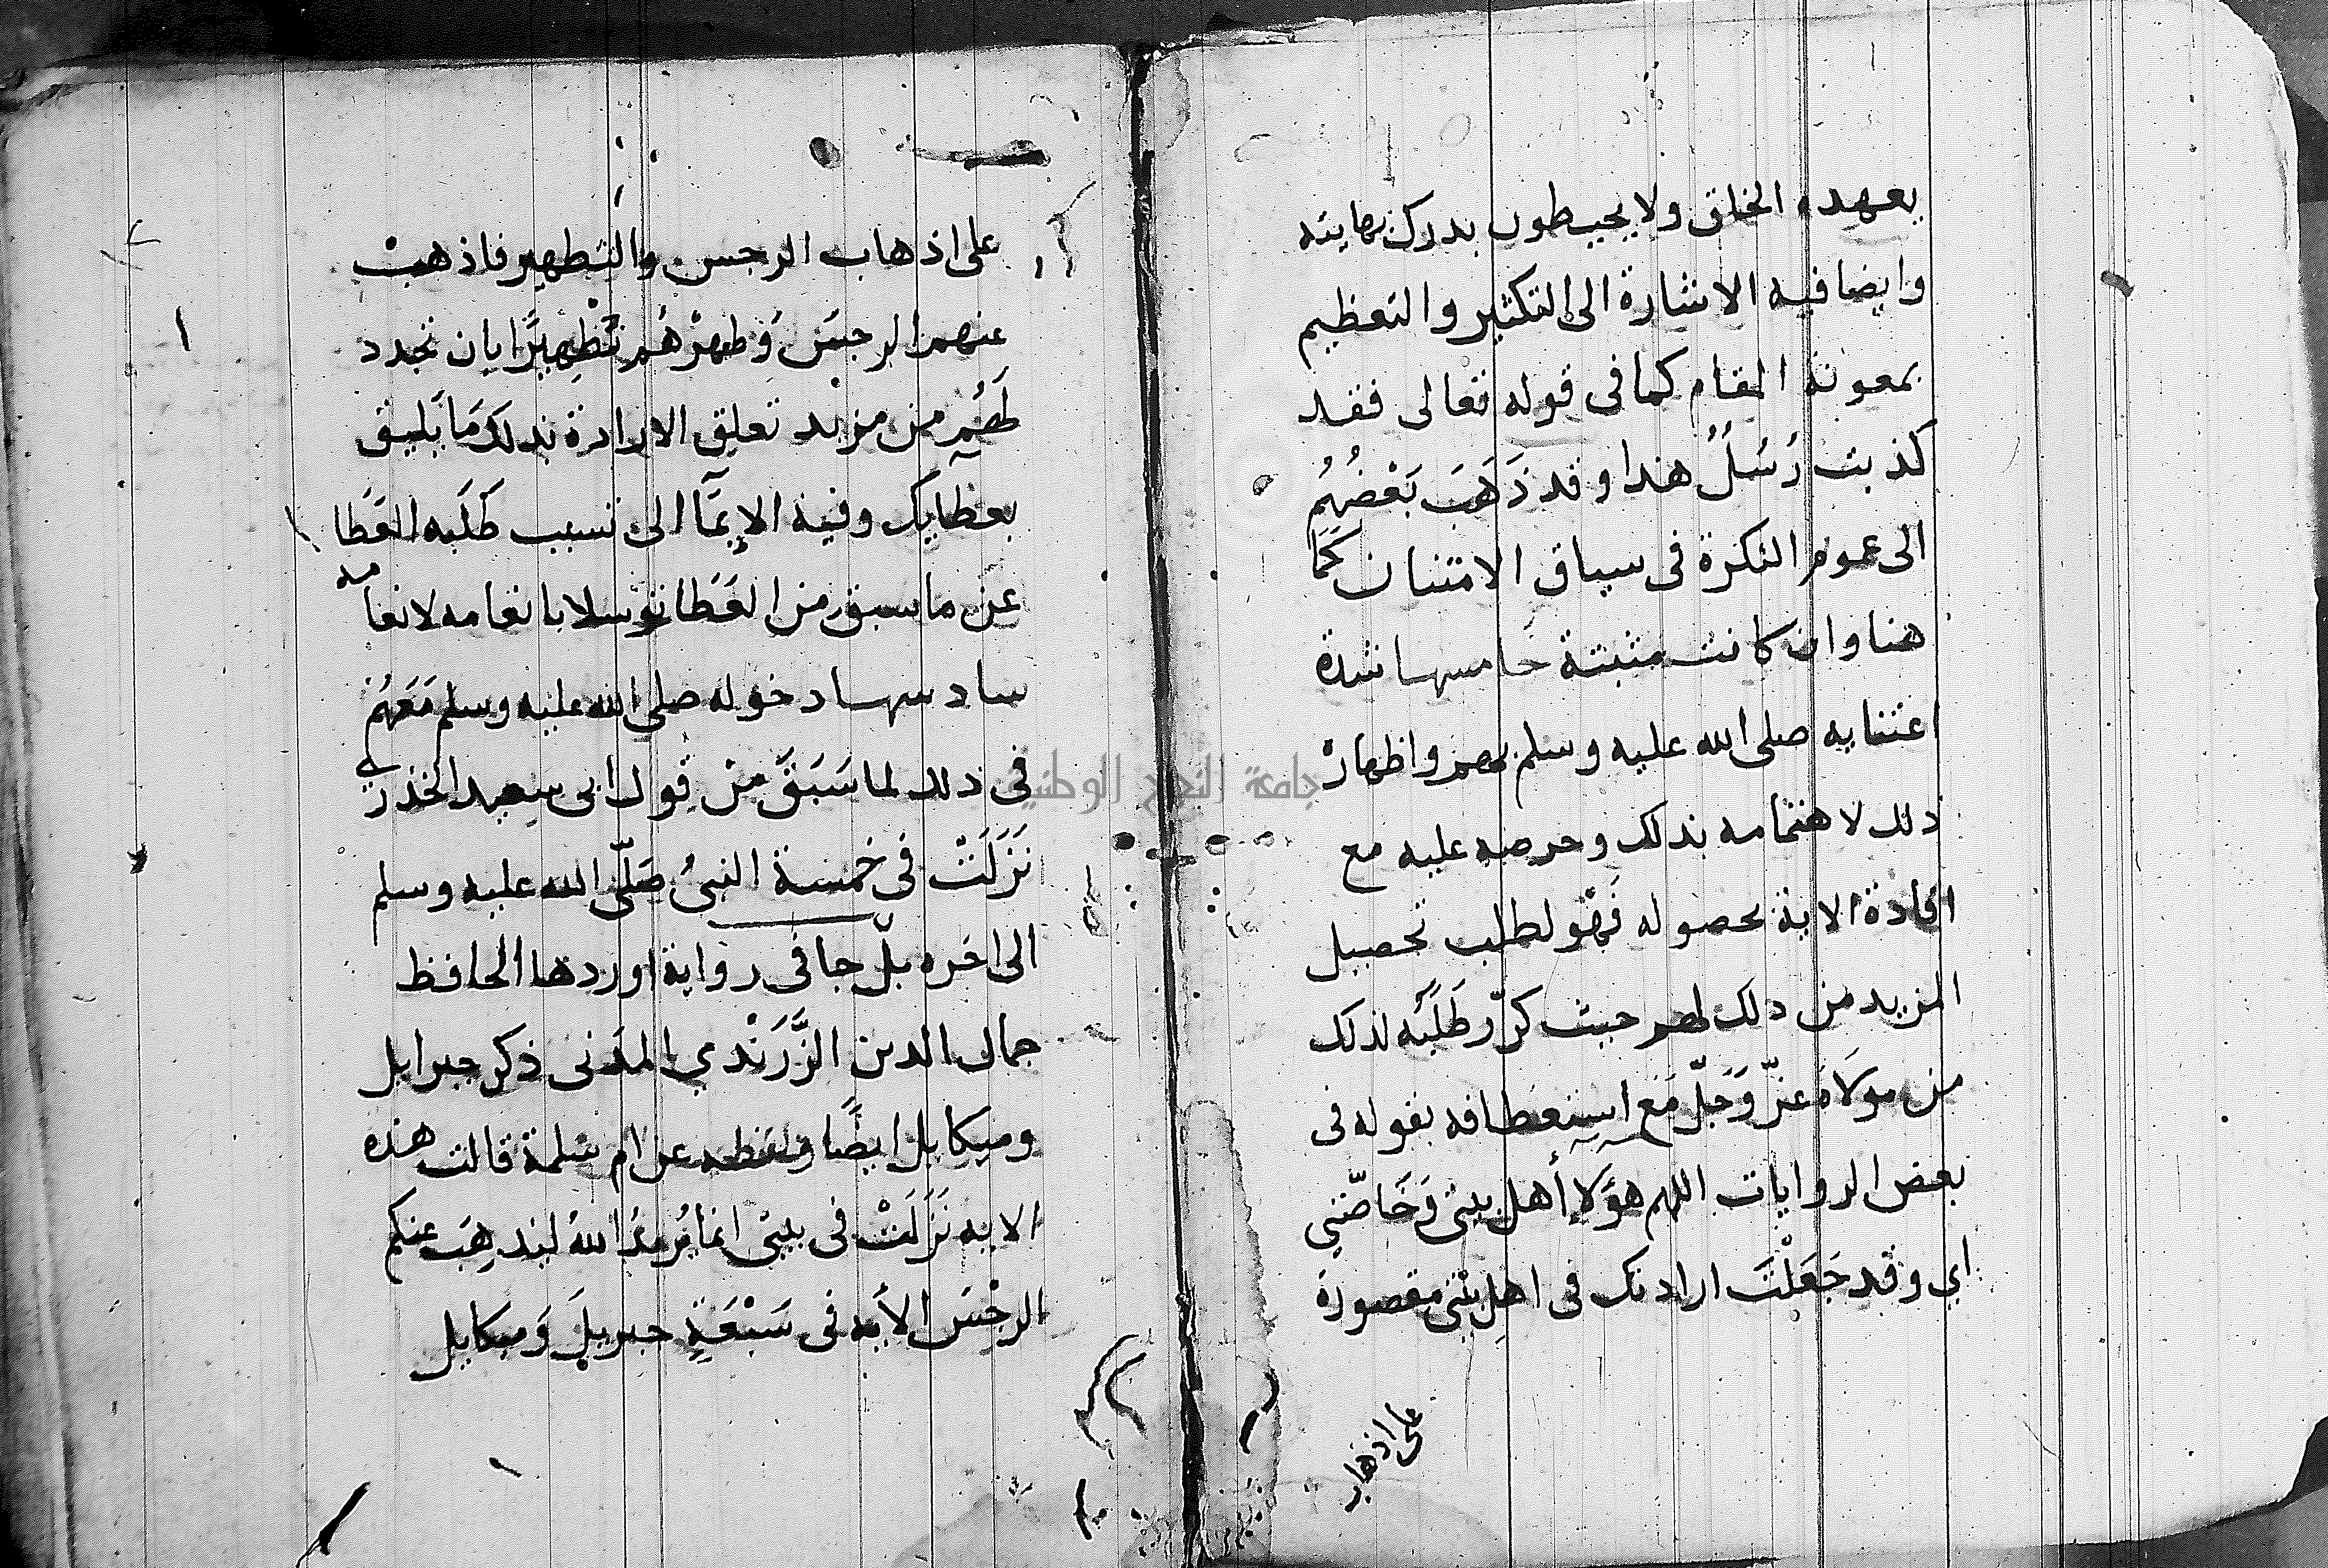 يعهده الخلق ولا يحيطون بدرك نهايته
وايضا فيه الاشارة الى التكثير والتعظيم
بمعونة المقام كما فى قوله تعالى فقد
كذبت رُسُلٌ هذا وقد ذَهَبَ بَعْضُهُم
الى عموم النكرة فى سياق الامتنان كما
هنا وان كانت مثبتة خامسها شدة
اعتنايه صلى الله عليه وسلم بهم واظهار
ذلك لاهتمامه بذلك وحرصه عليه مع
افادة الاية بحصوله فَهُو لطلب تحصيل
المزيد من ذلك لهم حيث كرّر طَلَبَه لذلك
من مولاه عزّ وَجَلّ مَع استعطافه بقوله فى
بعض الروايات اللهم هؤلا أهل بيتى وَخَاصّتي
اي وقد جَعَلْتَ ارادتك فى اهل بيتى مقصورة
على اذهاب
على اذهاب الرجس والتطهير فاذهبْ
عنهم الرجسَ وَطهرْهُم تَطْهِيرًا بان تجدد
لَهُم من مزيد تعلق الارادة بذلك مَا يَليق
بعطايك وفيه الإيمَآ الى تسبب طَلَبه العَطَا
عن ما سبق من العَطَا توسلا بانعامه لانعامه
سادسها دخوله صلى الله عليه وسلم مَعَهُم
فى ذلك لما سَبَقَ من قول ابى سعيد الخدري
نَزَلَتْ فى خمسة النبىُ صَلّى الله عليه وسلم
الى اخره بلّ جا فى رواية اوردها الحافظ
جمال الدين الزَّرَنْدي المدنى ذكر جبرايل
وميكايل ايضًا ولفظه عن ام سلمة قالت هذه
الايه نَزَلَتْ فى بيتى انما يُريدُ اللهُ ليذهِبَ عنكم
الرجْسَ الأيه فى سَبْعَةٍ جبريلَ وَميكايل
جامعة النجاح الوطنية